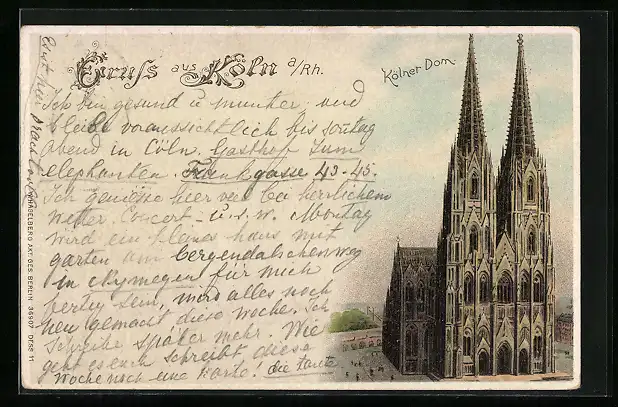 Gruss aus Köln a/Rh.
Kölner Dom.
Ich bin gesund u munter und
bleibe voraussichtlich bis sontag
Abend in Cöln. Gasthof zum
elephanten. Frankgasse 43-45.
Ich geniesse hier viel bei herrlichem
wetter. Concert- u.s.w. Montag
wird ein kleines haus mit
garten am bergendalschenweg
in Nymegen für mich
fertig sein, wird alles noch
neu gemacht diese Woche. Ich
Schreibe später mehr. Wie
geht es euch schreibt diese
Woche noch eine Karte! die tante
WINKELBERG AKT. GES. BERLIN 36907 Dess 11